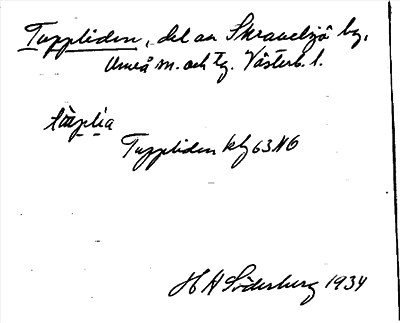 Tuppliden, del av Skravelsjö by,
Umeå sn. och tg. Västerb. l.
Tuppliden kbl 63 NO
H A Söderberg 1934